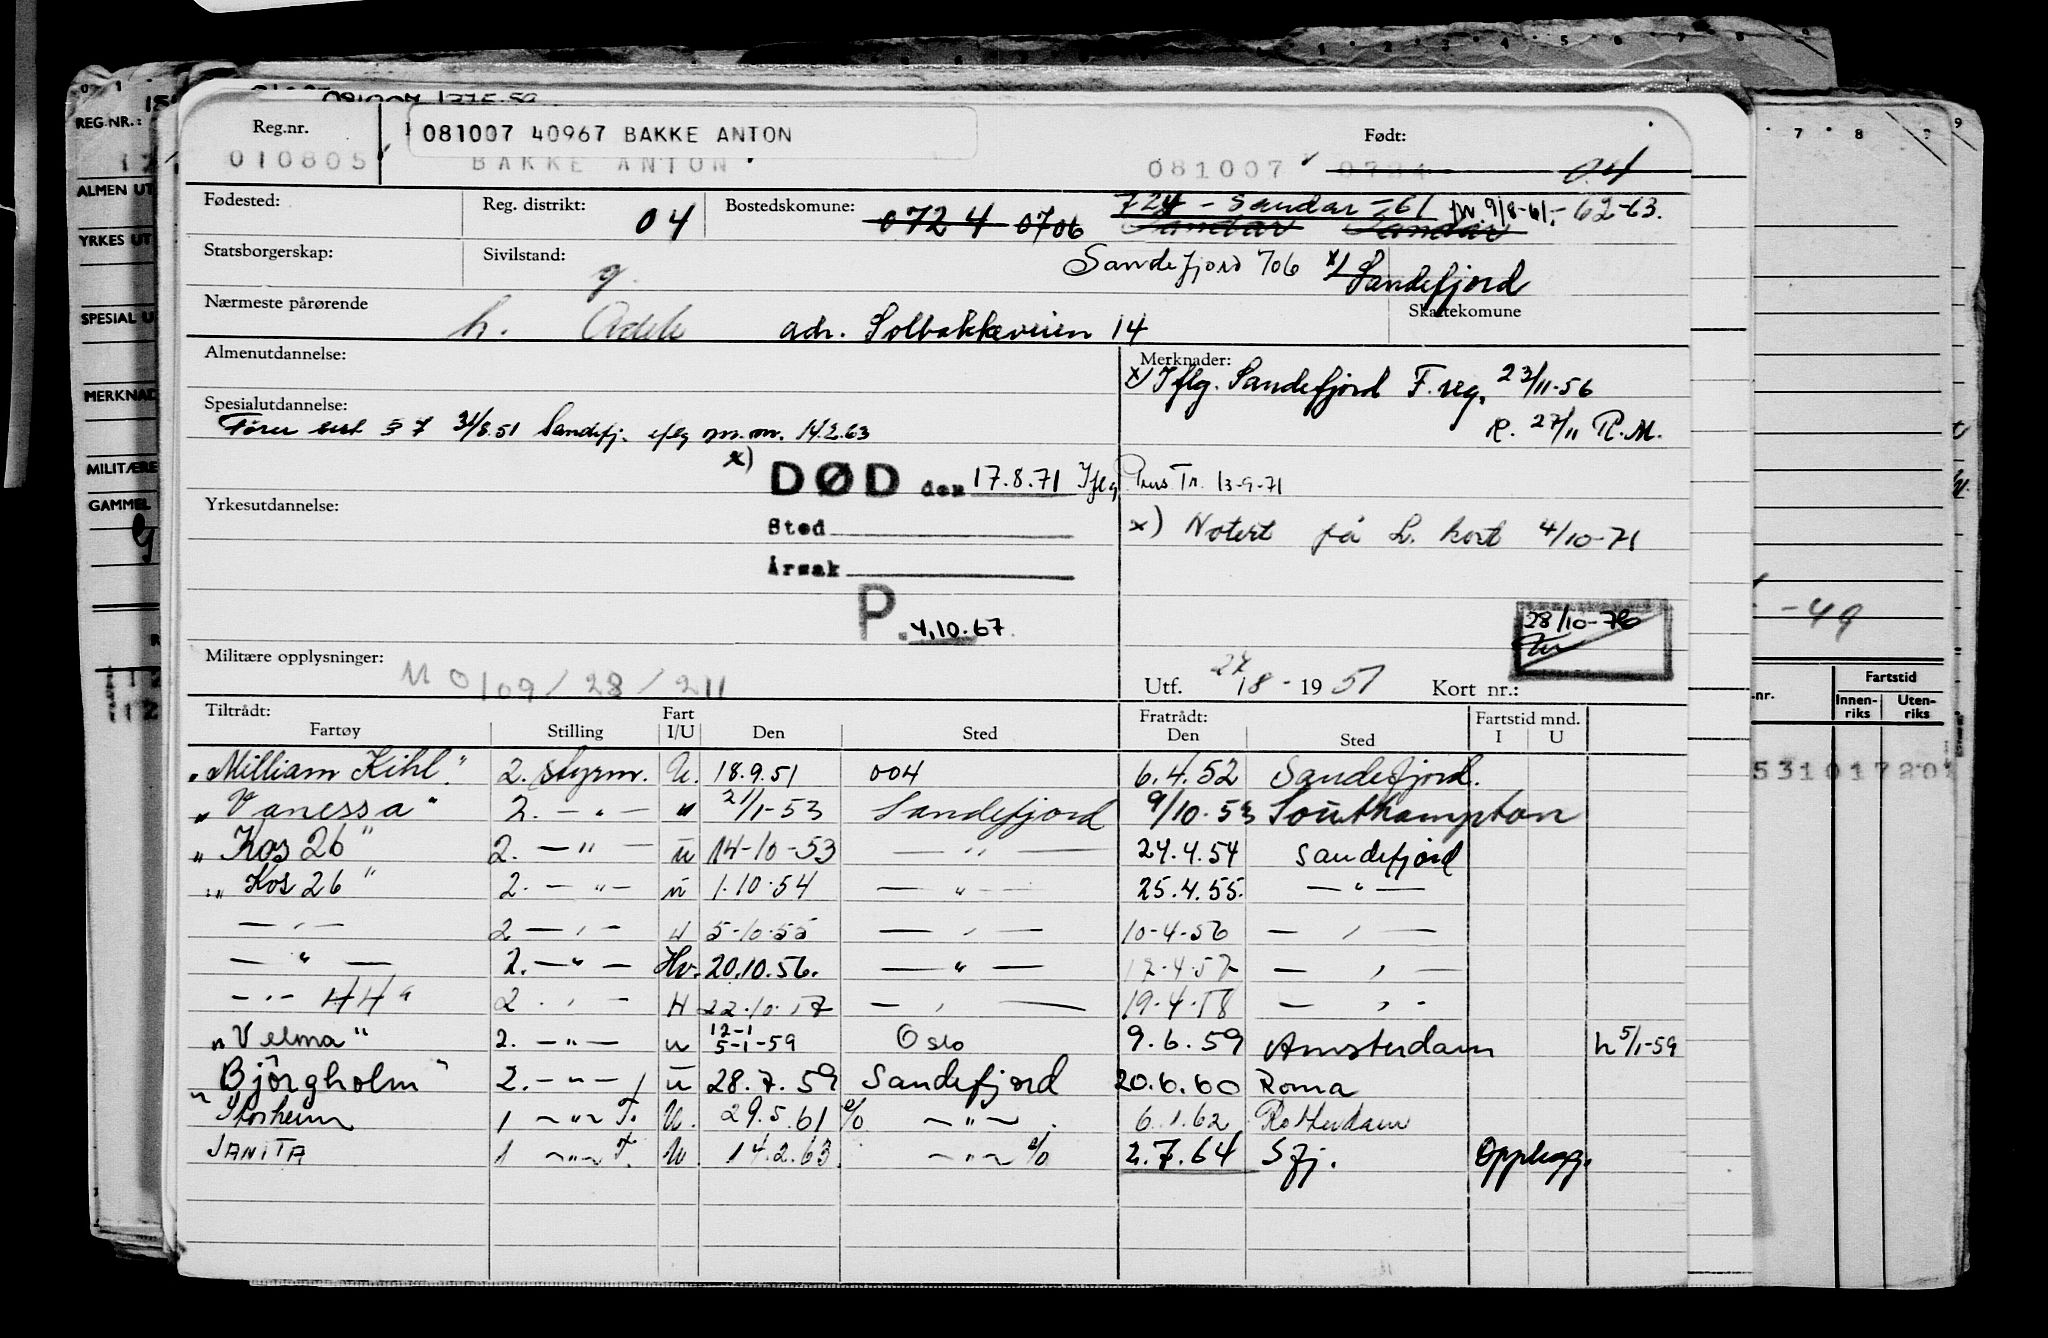 REG.NR.:
ALMEN UT
YRKES UT
SPESIAL U
MERKNAD
MILITÆRE
GAMMEL
Reg.nr.
081007 40967 BAKKE ANTON
Født:
010805 BAKKE ANTON 081007 04
Fødested:
Reg. distrikt: 04
Bostedskomune: 0724 0706
724 - Sandar - 61 fr. 9/8-61 - 62-63.
Sandar Sandar
Statsborgerskap:
Sivilstand: g.
Sandefjord 706 x) Sandefjord
Skattekomune
Nærmeste pårørende
h. Adele adr. Solbakkeveien 14
Almenutdannelse:
Merknader:
x) Iflg. Sandefjord F. reg. 23/11-56
R. 27/11 R.M.
Spesialutdannelse:
Fører sert § 7 31/8.51 Sandefj. iflg m.m. 14.2.63
x) DØD den 17.8.71 Iflg Tr. 13-9-71
x) Notert på L. kort 4/10-71
Yrkesutdannelse:
Sted
Årsak
P. 4.10.67.
28/10-76
Militære opplysninger:
M 0109/28/211
Utf. 27/8 - 1951 Kort nr.:
Tiltrådt: Fart Fratrådt: Fartstid mnd.
Fartøy Stilling I/U Den Sted Den Sted I U
"William Kihl." 2. styrm. U. 18.9.51 004 6.4.52 Sandefjord.
"Vanessa" 2. — " — " 21/1-53 Sandefjord 9/10.53 Southampton
"Kos 26" 2. — " — u 14-10-53 — " — 24.4.54 Sandefjord
"Kos 26" 2. — " — u 1.10.54 — " — 25.4.55. — " —
— " — 2 — " — H 5-10-55 — " — 10-4-56 — " —
— " — 2. — " — Hv. 20.10.56. — " — 17-4-57 — " —
— " — 2 — " — H 22.10.57 — " — 19-4-58 — " —
"Velma" 2. — " — u 12-1 5-1-59 Oslo 9.6.59 Amsterdam h 5/1-59
"Björgholm" 2. — " — u 28.7.59 Sandefjord 20.6.60 Roma
Storheim 1 — " — F. U. 29.5.61 % — " — 6.1.62 Rotterdam
JANITA 1 — " — F. U. 14.2.63 — " — % 2.7.64 Sfj. Opplagg.
-49
.nr.
Fartstid
Innen-riks Uten-riks
531017201